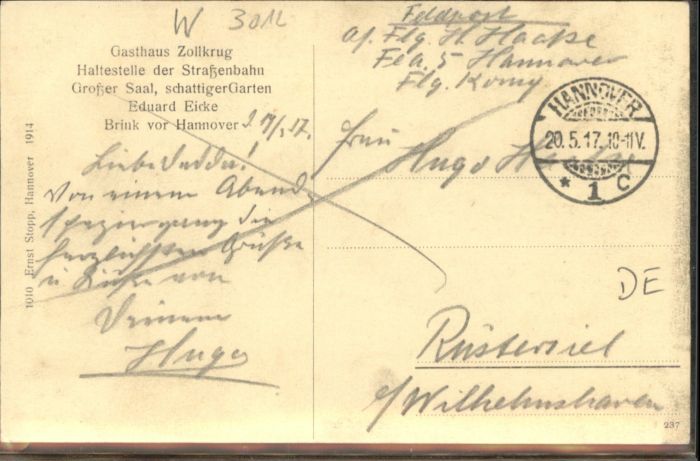 W 3012
Gasthaus Zollkrug
Haltestelle der Straßenbahn
Großer Saal, schattiger Garten
Eduard Eicke
Brink vor Hannover
Von einem Abend
spaziergang die
herzlichsten Grüße
u. Küsse von
Deinem
Hugo
1010 Ernst Stopp, Hannover 1914
Feldpost
Flg. H. Haake
Fea. 5 Hannover
Flg. Komp.
HANNOVER
20.5.17.10-11V.
* 1 C
Frau
Hugo
DE
Rüstersiel
b/Wilhelmshaven
237